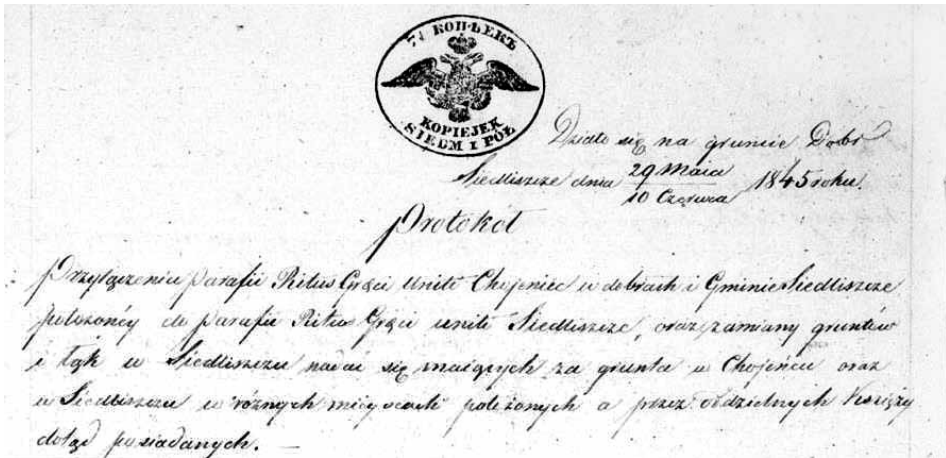 7½ КОПѢЕКЪ
KOPIEJEK
SIEDM I PÓŁ
Działo się na gruncie Dóbr
Siedliszcze dnia 29 Maia / 10 Czerwca 1845 roku.
Protokół
Przyłączenia parafii Ritus Gręci Uniti Chojeniec w dobrach i Gminie Siedliszcze
położonéy do parafii Ritus Gręci uniti Siedliszcze, oraz zamiany gruntów
i łąk w Siedliszczu nadai się maiących za grunta w Chojeńcu oraz
w Siedliszczu w różnych mieyscach położonych a przez oddzielnych Xsięży
dotąd posiadanych. —